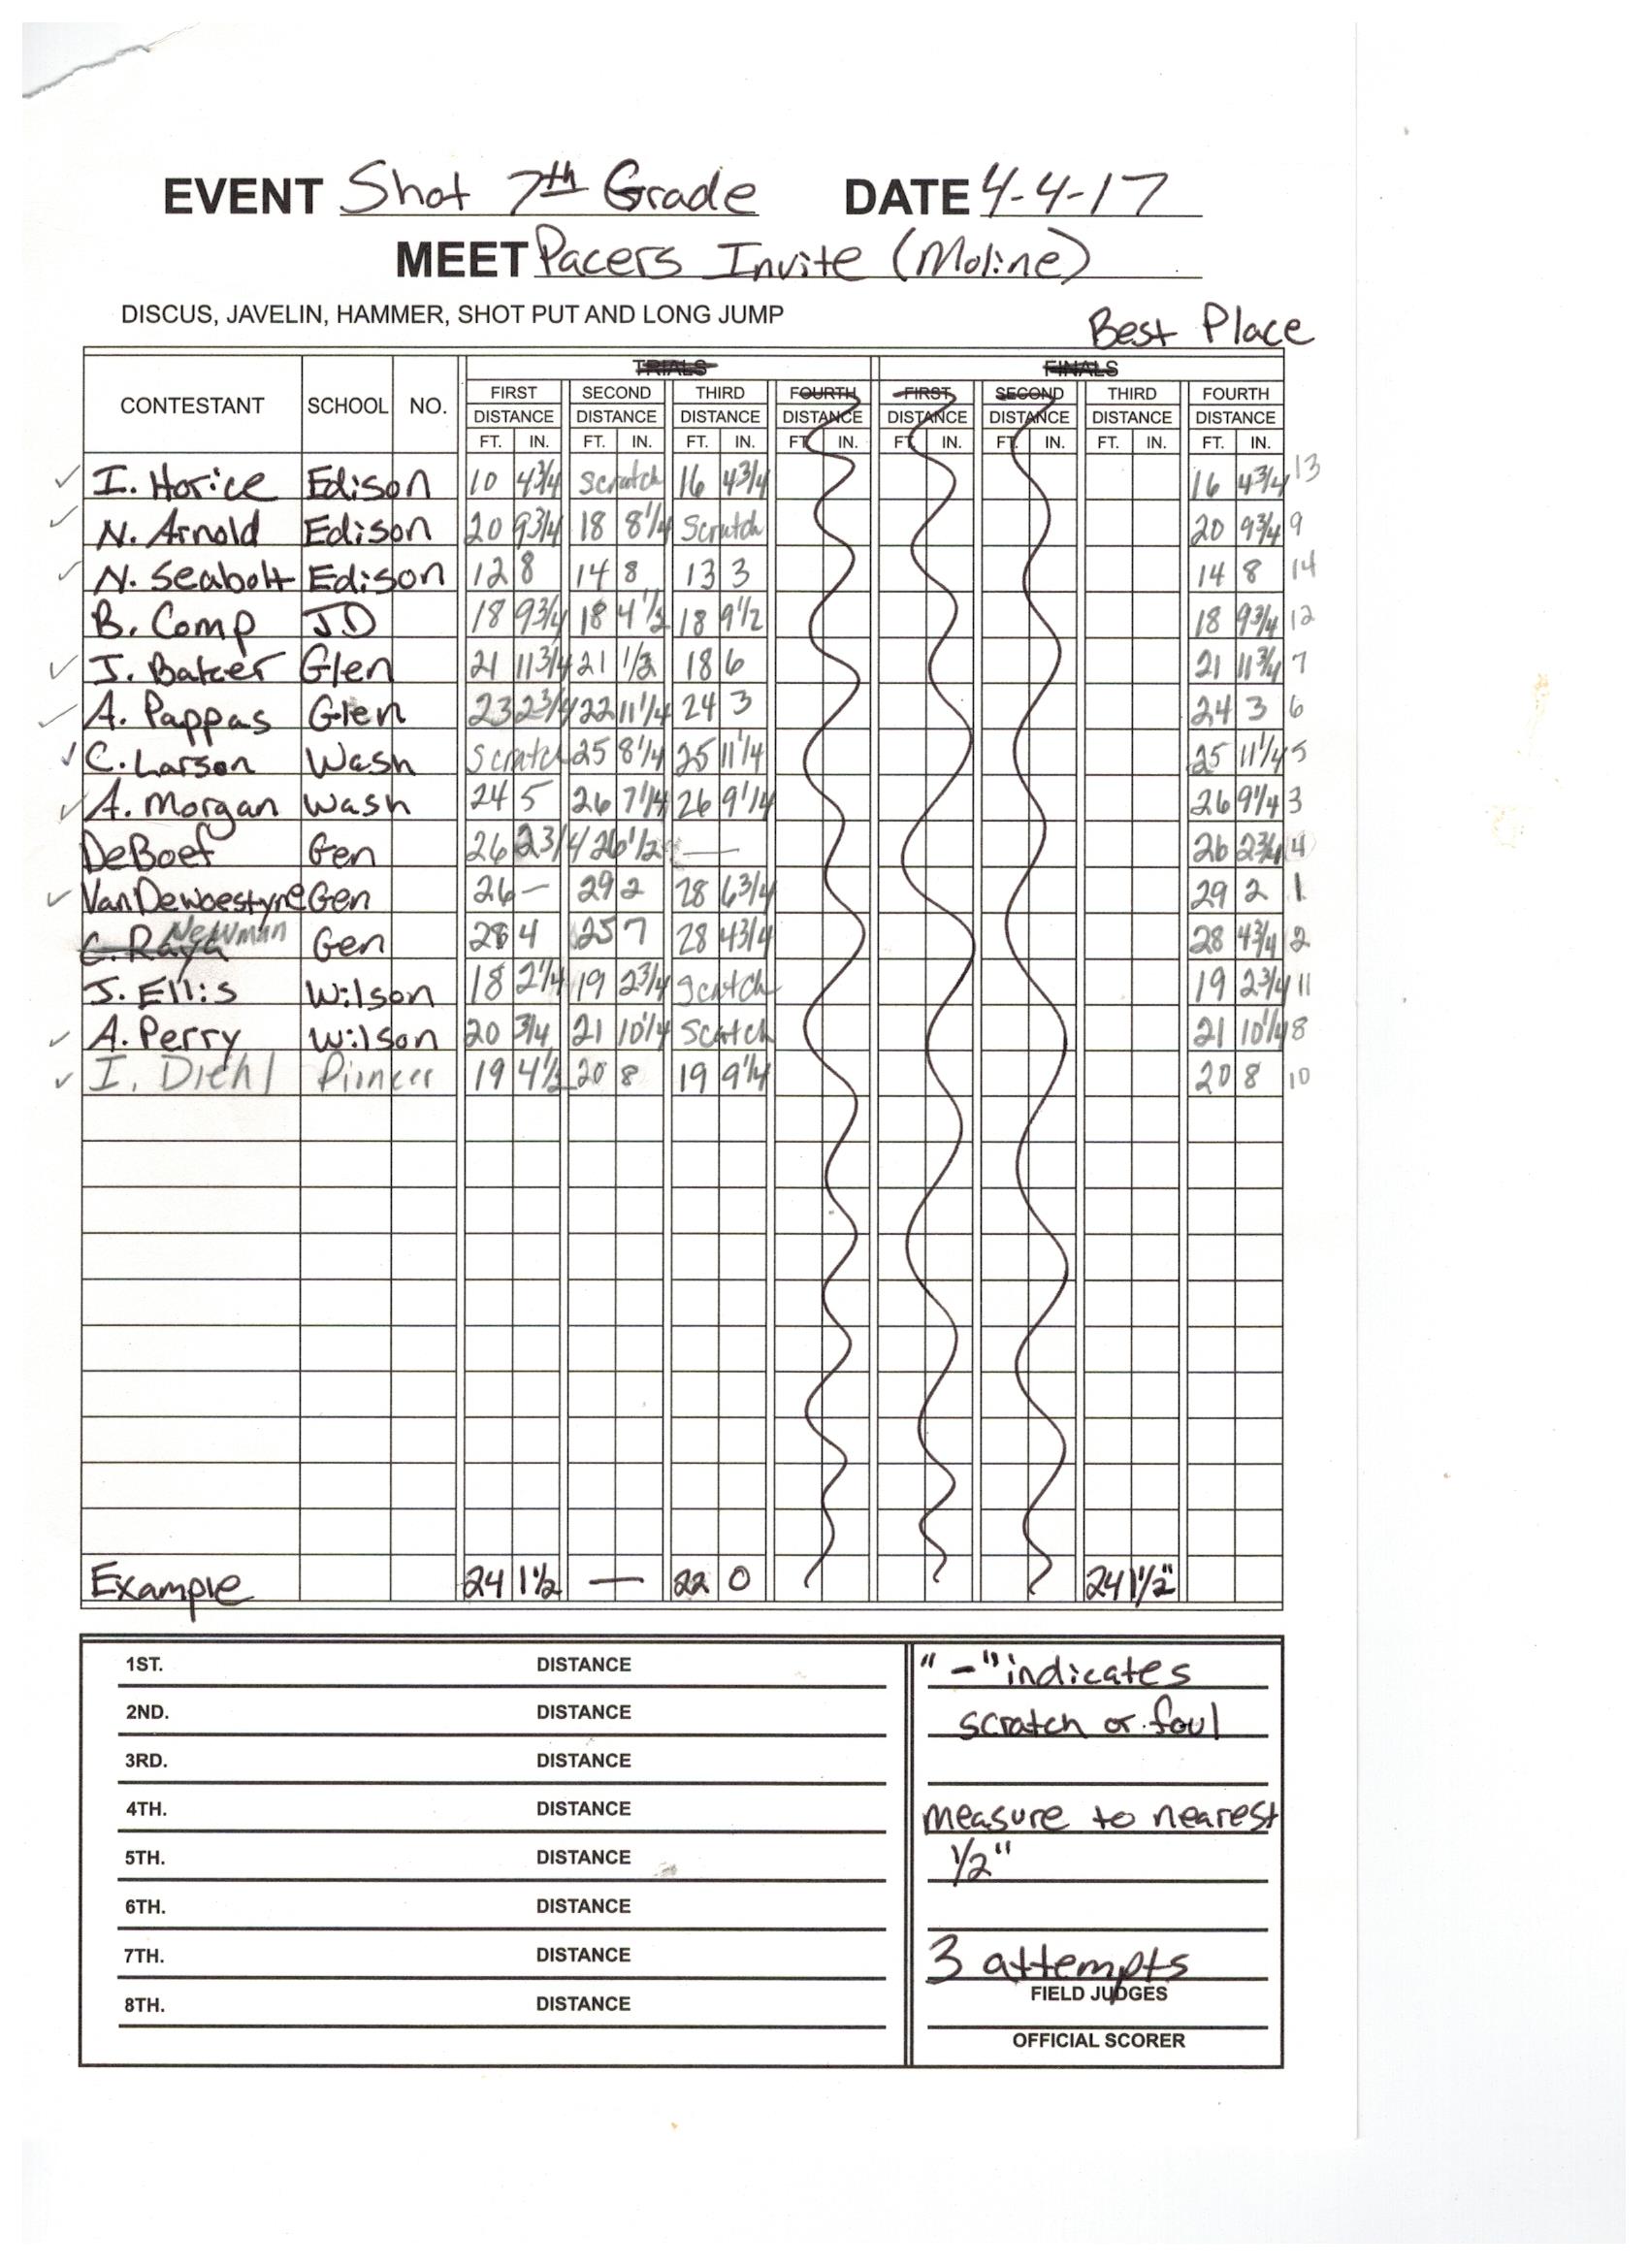 EVENT Shot 7th Grade DATE 4-4-17
MEET Pacers Invite (Moline)
DISCUS, JAVELIN, HAMMER, SHOT PUT AND LONG JUMP
Best Place
TRIALS FINALS
CONTESTANT SCHOOL NO. FIRST SECOND THIRD FOURTH FIRST SECOND THIRD FOURTH
DISTANCE DISTANCE DISTANCE DISTANCE DISTANCE DISTANCE DISTANCE DISTANCE
FT. IN. FT. IN. FT. IN. FT. IN. FT. IN. FT. IN. FT. IN. FT. IN.
✓ I. Horice Edison 10 4 3/4 Scratch 16 4 3/4 16 4 3/4 13
✓ N. Arnold Edison 20 9 3/4 18 8 1/4 Scratch 20 9 3/4 9
✓ N. Seabolt Edison 12 8 14 8 13 3 14 8 14
B. Comp JD 18 9 3/4 18 4 1/2 18 9 1/2 18 9 3/4 12
✓ J. Glen 21 11 3/4 21 1/2 18 6 21 11 3/4 7
✓ A. Pappas Glen 23 2 3/4 22 11 1/4 24 3 24 3 6
✓ C. Larson Wash Scratch 25 8 1/4 25 11 1/4 25 11 1/4 5
✓ A. Morgan Wash 24 5 26 7 1/4 26 9 1/4 26 9 1/4 3
DeBoef Gen 26 2 3/4 26 1/2 — 26 2 3/4 4
✓ VanDeWoestyne Gen 26 — 29 2 28 6 3/4 29 2 1
C. Raya Newman Gen 4 25 7 28 4 3/4 28 4 3/4 2
J. Ellis Wilson 18 2 1/4 19 2 3/4 Scratch 19 2 3/4 11
✓ A. Perry Wilson 20 3/4 21 10 1/4 Scratch 21 10 1/4 8
✓ I. Diehl Pioneer 19 4 1/2 20 8 19 9 1/4 20 8 10
Example 24 1 1/2 — 22 0 24 1 1/2"
1ST. DISTANCE
2ND. DISTANCE
3RD. DISTANCE
4TH. DISTANCE
5TH. DISTANCE
6TH. DISTANCE
7TH. DISTANCE
8TH. DISTANCE
"-" indicates
scratch or foul
measure to nearest
1/2"
3 attempts
FIELD JUDGES
OFFICIAL SCORER